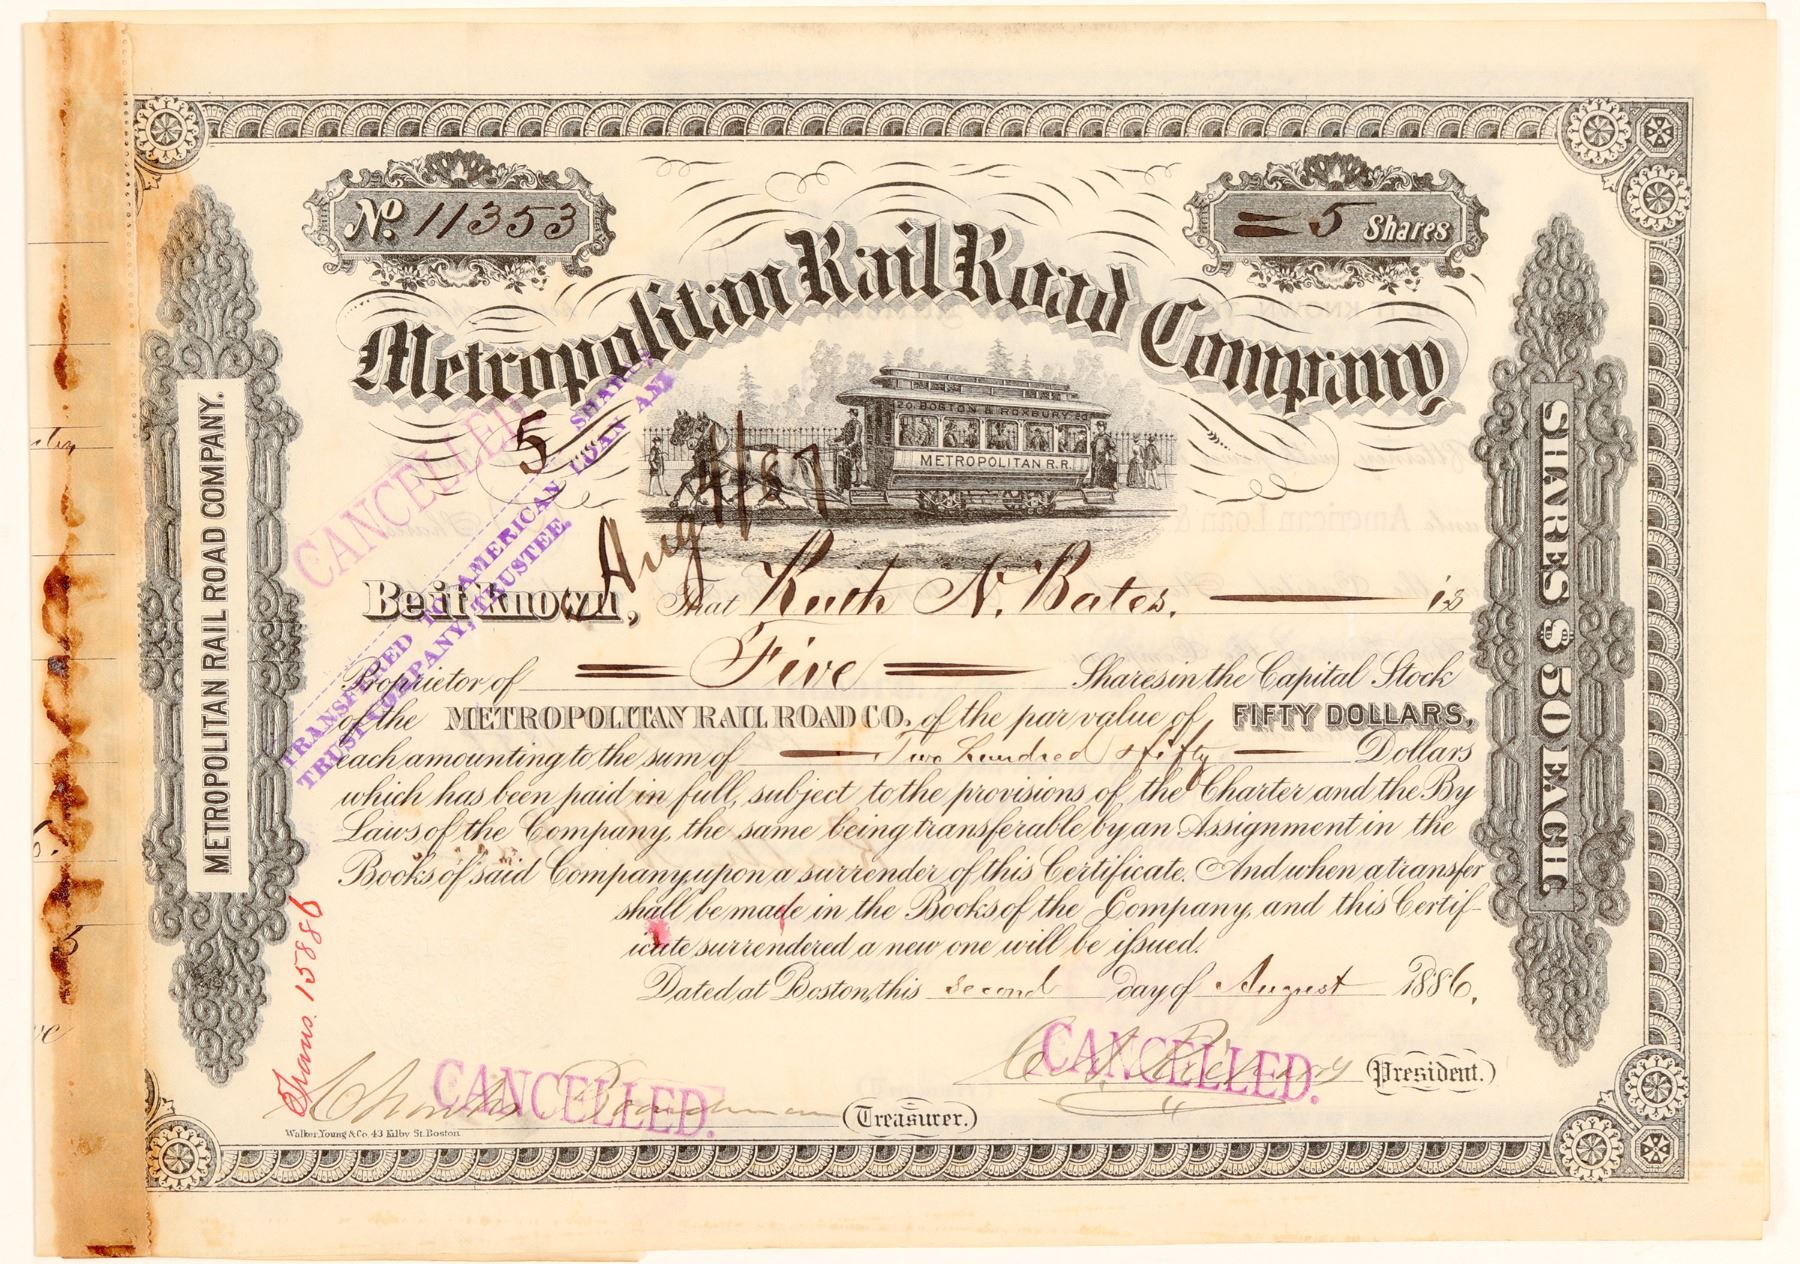 No. 11353
= 5 Shares
Metropolitan Rail Road Company
20. BOSTON & ROXBURY 20
METROPOLITAN R.R.
CANCELLED
5 SHARES
TRANSFERRED TO AMERICAN LOAN AND
TRUST COMPANY, TRUSTEE.
Aug 4/87
Be it Known, That Ruth N. Bates. is
Proprietor of Five Shares in the Capital Stock
of the METROPOLITAN RAIL ROAD CO. of the par value of FIFTY DOLLARS,
each amounting to the sum of Two hundred & fifty Dollars
which has been paid in full, subject to the provisions of the Charter and the By
Laws of the Company, the same being transferable by an Assignment in the
Books of said Company, upon a surrender of this Certificate. And when a transfer
shall be made in the Books of the Company, and this Certif-
icate surrendered a new one will be issued.
Dated at Boston, this second day of August 1886.
CANCELLED.
(President.)
CANCELLED.
(Treasurer.)
Walker, Young & Co. 43 Kilby St. Boston
METROPOLITAN RAIL ROAD COMPANY.
Trans. 15886
SHARES $50 EACH.